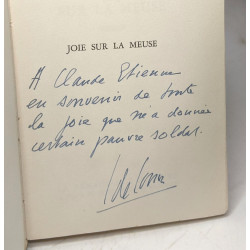 JOIE SUR LA MEUSE
A Claude Etienne
en souvenir de toute
la joie que m'a donnée
certain pauvre soldat.